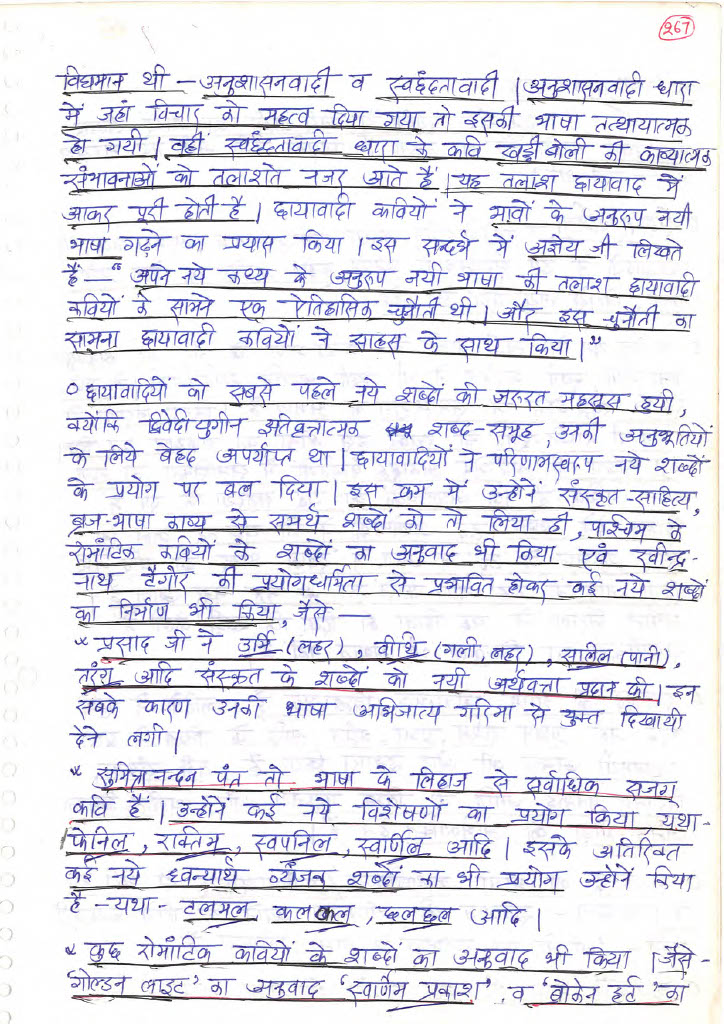 267
विद्यमान थी – अनुशासनवादी व स्वछंदतावादी | अनुशासनवादी धारा
में जहां विचार को महत्व दिया गया तो इसकी भाषा तत्थायात्मक
हो गयी | वहीं स्वछंदतावादी धारा के कवि खड़ी बोली की काव्यात्मक
संभावनाओं को तलाशते नजर आते हैं | यह तलाश छायावाद में
आकर पूरी होती है | छायावादी कवियों ने भावों के अनुरूप नयी
भाषा गढ़ने का प्रयास किया | इस सन्दर्भ में अज्ञेय जी लिखते
हैं – “ अपने नये कथ्य के अनुरूप नयी भाषा की तलाश छायावादी
कवियों के सामने एक ऐतिहासिक चुनौती थी | और इस चुनौती का
सामना छायावादी कवियों ने साहस के साथ किया |”
० छायावादियों को सबसे पहले नये शब्दों की जरुरत महसूस हुयी,
क्योंकि द्विवेदीयुगीन इतिवृत्तात्मक शब्द-समूह, उनकी अनुभूतियों
के लिये बेहद अपर्याप्त था | छायावादियों ने परिणामस्वरूप नये शब्दों
के प्रयोग पर बल दिया | इस क्रम में उन्होंनें संस्कृत-साहित्य,
ब्रज-भाषा काव्य से समर्थ शब्दों को तो लिया ही, पाश्चिम के
रोमांटिक कवियों के शब्दों का अनुवाद भी किया एवं रवीन्द्र-
नाथ टैगोर की प्रयोगधर्मिता से प्रभावित होकर कई नये शब्दों
का निर्माण भी किया, जैसे –
* प्रसाद जी ने उर्मि (लहर), वीथि (गली, लहर), सलिल (पानी),
तरंग आदि संस्कत के शब्दों को नयी अर्थवत्ता प्रदान की | इन
सबके कारण उनकी भाषा अभिजात्य गरिमा से युक्त दिखायी
देने लगी |
* सुमित्रानन्दन पंत तो भाषा के लिहाज से सर्वाधिक सजग
कवि हैं | उन्होंने कई नये विशेषणों का प्रयोग किया यथा-
फेनिल, रक्तिम, स्वपनिल, स्वर्णिल आदि | इसके अतिरिक्त
कई नये ध्वन्यार्थ व्यंजक शब्दों का भी प्रयोग उन्होंने किया
है – यथा- टलमल कलकल, छलछल आदि |
* कुछ रोमांटिक कवियों के शब्दों का अनुवाद भी किया | जैसे-
'गोल्डन लाइट' का अनुवाद 'स्वर्णिम प्रकाश', व 'ब्रोकेन हर्ट' का